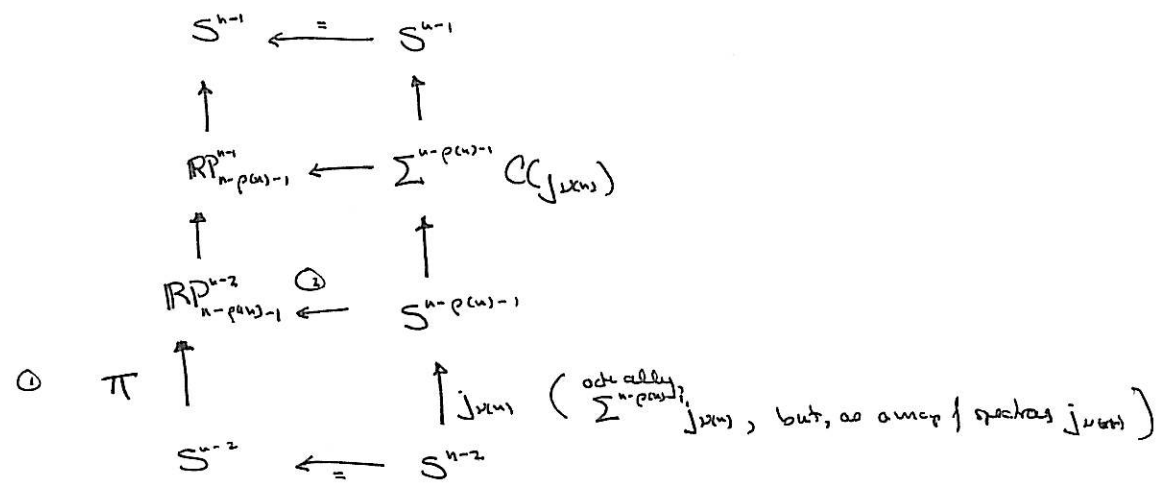 S^{n-1} ←^{=} S^{n-1}
ℝP^{n-1}_{n-ρ(n)-1} ← Σ^{n-ρ(n)-1} C(j_{ν(n)})
ℝP^{n-2}_{n-ρ(n)-1} ②← S^{n-ρ(n)-1}
① π ↑ ↑ j_{ν(n)} (actually, Σ^{n-ρ(n)-1} j_{ν(n)}, but, as a map of spectra j_{ν(n)})
S^{n-2} ←_{=} S^{n-2}